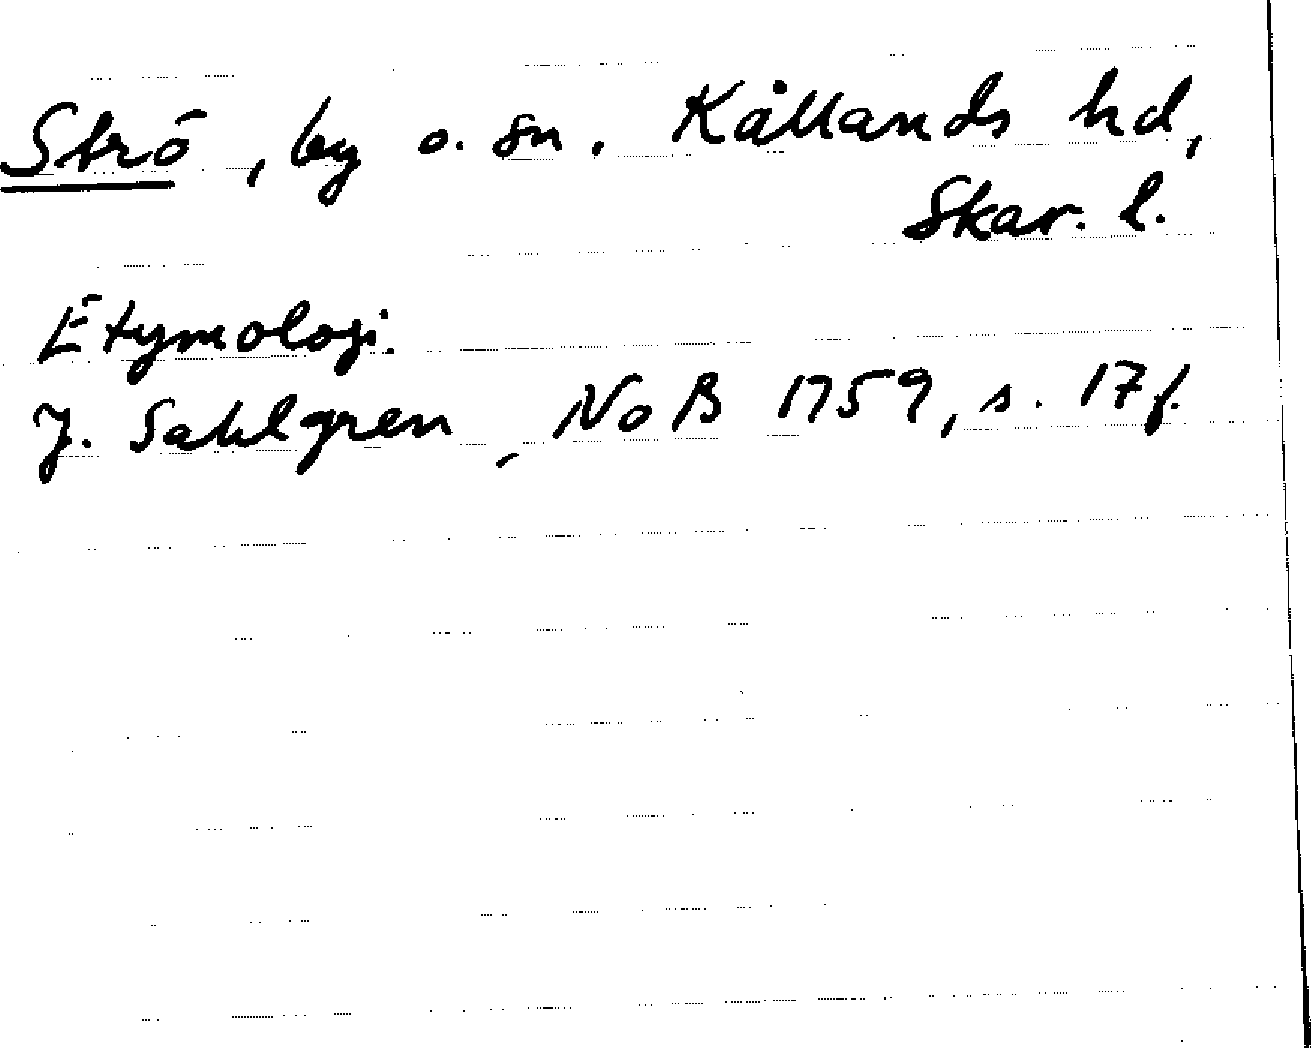 Strö, by o. sn. Kållands hd,
Skar. l.
Etymologi.
J. Sahlgren, NoB 1959, s. 17f.